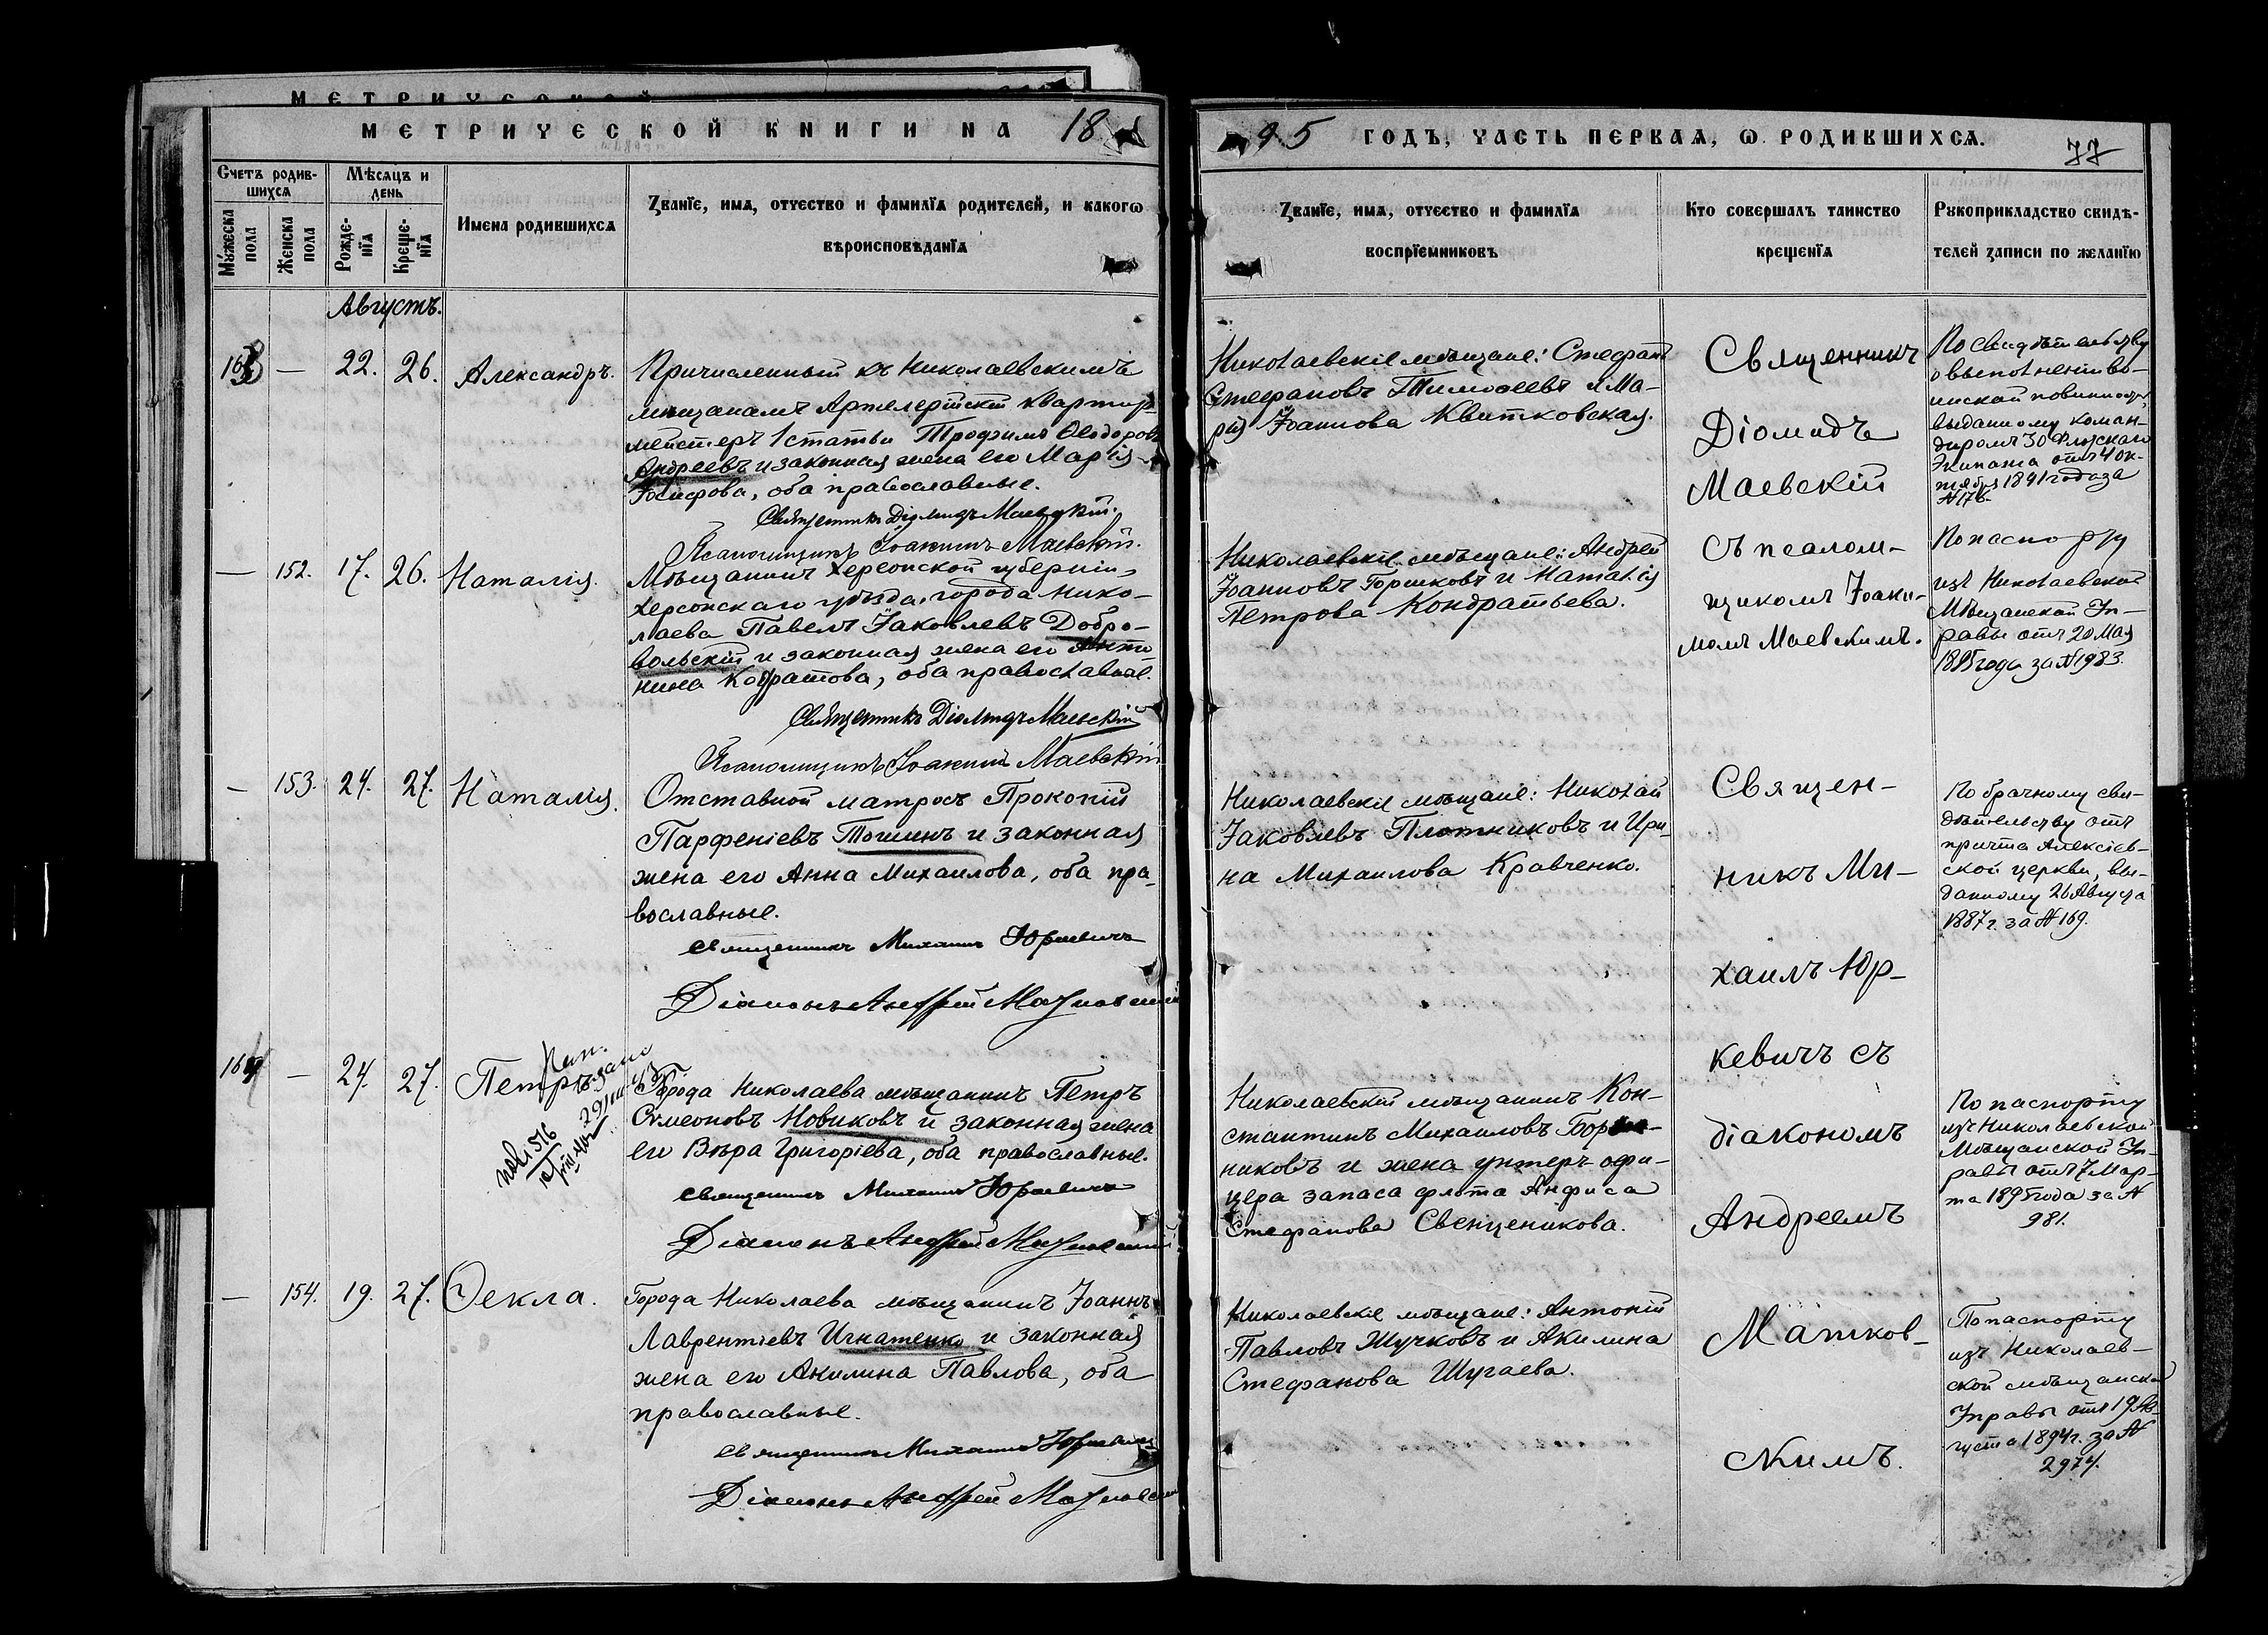 МЕТРИЧЕСКОЙ
МЕТРИЧЕСКОЙ КНИГИ НА 18
95 ГОДЪ, ЧАСТЬ ПЕРВАЯ, Ѡ РОДИВШИХСЯ.
77
Счетъ родив-
шихся
Мѣсяцъ и
день
Мужеска
пола
Женска
пола
Рожде-
нїя
Креще-
нїя
Имена родившихся
Званїе, имя, отчество и фамилїя родителей, и какогѡ
вѣроисповѣданїя
Званїе, имя, отчество и фамилїя
воспрїемниковъ
Кто совершалъ таинство
крещенїя
Рукоприкладство свидѣ-
телей записи по желанїю
Августъ.
163 — 22. 26. Александръ.
Причисленный къ Николаевскимъ
мѣщанамъ Артилерійскій квартир-
мейстеръ 1 статьи Трофимъ Ѳеодоровъ
Андреевъ и законная жена его Марія
Іосифова, оба православные.
Священникъ Діомидъ Маевскій.
Псаломщикъ Іоакимъ Маевскій.
Николаевскіе мѣщане: Стефанъ
Стефановъ Тимоѳеевъ и Ма-
рія Іоаннова Квитковская.
Священникъ
Діомидъ
Маевскій
съ псалом-
щикомъ Іоаки-
момъ Маевскимъ.
По свидѣтельству
о выполненіи во-
инской повинности,
выданному коман-
диромъ 30 Флотскаго
Экипажа отъ 4 ок-
тября 1891 года за
№ 176.
— 152. 17. 26. Наталія.
Мѣщанинъ Херсонской губерніи,
Херсонскаго уѣзда, города Нико-
лаева Павелъ Іаковлевъ Добро-
вольскій и законная жена его Анто-
нина Кодратова, оба православные.
Священникъ Діомидъ Маевскій
Псаломщикъ Іоакимъ Маевскій
Николаевскіе мѣщане: Андрей
Іоанновъ Горшковъ и Наталія
Петрова Кондратьева.
По паспорту
изъ Николаевской
Мѣщанской Уп-
равы отъ 20 Мая
1895 года за № 1983.
— 153. 24. 27. Наталія.
Отставной матросъ Прокопій
Парѳеніевъ Тошинъ и законная
жена его Анна Михаилова, оба пра-
вославные.
Священникъ Михаилъ Юркевичъ
Діаконъ Андрей Матковскій
Николаевскіе мѣщане: Николай
Іаковлевъ Плотниковъ и Ири-
на Михаилова Кравченко.
Священ-
никъ Ми-
хаилъ Юр-
кевичъ съ
діакономъ
Андреемъ
Матков-
скимъ.
По брачному сви-
дѣтельству отъ
причта Алексіев-
ской церкви, вы-
данному 26 Августа
1887 г. за № 169.
164 — 24. 27. Петръ.
Города Николаева мѣщанинъ Петръ
Симеоновъ Новиковъ и законная жена
его Вѣра Григоріева, оба православные.
Священникъ Михаилъ Юркевичъ
Діаконъ Андрей Матковскій
Николаевскій мѣщанинъ Кон-
стантинъ Михаиловъ
никовъ и жена унтеръ-офи-
цера запаса флота Анфиса
Стефанова Свенценикова.
По паспорту
изъ Николаевской
Мѣщанской Уп-
равы отъ 7 Мар-
та 1895 года за №
981.
— 154. 19. 27. Ѳекла.
Города Николаева мѣщанинъ Іоаннъ
Лаврентіевъ Игнатенко и законная
жена его Акилина Павлова, оба
православные.
Священникъ Михаилъ Юркевичъ
Діаконъ Андрей Матковскій
Николаевскіе мѣщане: Антоній
Павловъ Жучковъ и Акилина
Стефанова Шугаева.
По паспорту
изъ Николаев-
ской мѣщанской
Управы отъ 19 Ав-
густа 1894 г. за №
2974.